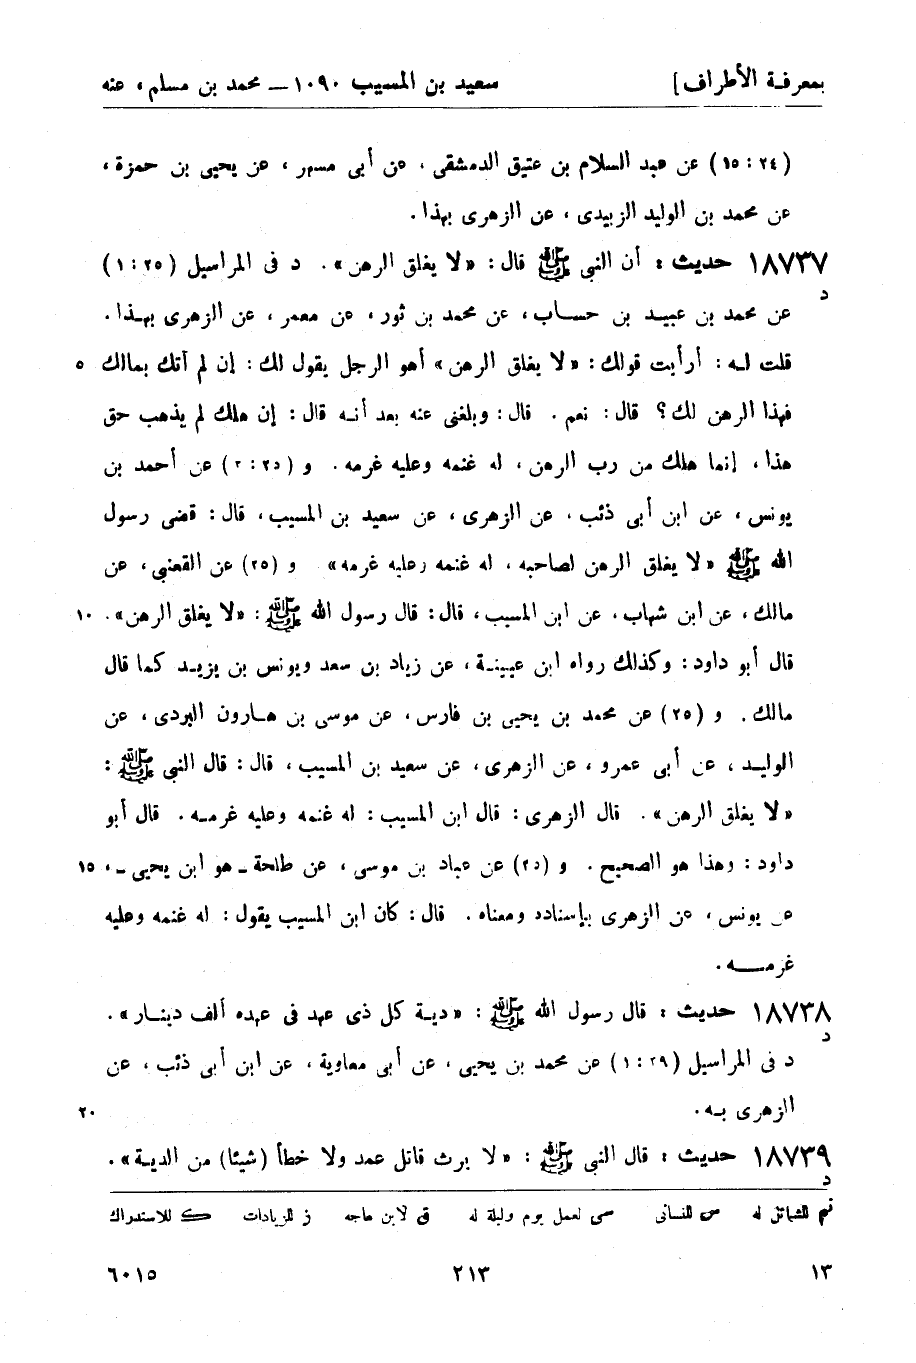 بمعرفة الأطراف] سعيد بن المسيب ١٠٩٠ ــ محمد بن مسلم ، عنه
(٢٤ : ١٥) عن عبد السلام بن عتيق الدمشقى ، عن أبى مسهر ، عن يحيى بن حمزة ،
عن محمد بن الوليد الزبيدى ، عن الزهرى بهذا .
١٨٧٣٧ حديث : أن النبى ﷺ قال : «لا يغلق الرهن» . د فى المراسيل (٢٥ : ١)
د
عن محمد بن عبيد بن حساب ، عن محمد بن ثور ، عن معمر ، عن الزهرى بهذا .
قلت له : أرأيت قولك : «لا يغلق الرهن» أهو الرجل يقول لك : إن لم آتك بمالك ٥
فهذا الرهن لك ؟ قال : نعم . قال : وبلغنى عنه بعد أنه قال : إن هلك لم يذهب حق
هذا ، إنما هلك من رب الرهن ، له غنمه وعليه غرمه . و (٢٥ : ٢) عن أحمد بن
يونس ، عن ابن أبى ذئب ، عن الزهرى ، عن سعيد بن المسيب ، قال : قضى رسول
الله ﷺ «لا يغلق الرهن لصاحبه ، له غنمه وعليه غرمه» و (٢٥) عن القعنبى ، عن
مالك ، عن ابن شهاب ، عن ابن المسيب ، قال : قال رسول الله ﷺ : «لا يغلق الرهن» . ١٠
قال أبو داود : وكذلك رواه ابن عيينة ، عن زياد بن سعد ويونس بن يزيد كما قال
مالك . و (٢٥) عن محمد بن يحيى بن فارس ، عن موسى بن هارون البردى ، عن
الوليد ، عن أبى عمرو ، عن الزهرى ، عن سعيد بن المسيب ، قال : قال النبى ﷺ :
«لا يغلق الرهن» . قال الزهرى : قال ابن المسيب : له غنمه وعليه غرمه . قال أبو
داود : وهذا هو الصحيح . و (٢٥) عن عباد بن موسى ، عن طلحة ـ هو ابن يحيى ـ ، ١٥
عن يونس ، عن الزهرى بإسناده ومعناه . قال : كان ابن المسيب يقول : له غنمه وعليه
غرمــه .
١٨٧٣٨ حديث : قال رسول الله ﷺ : «دية كل ذى عهد فى عهده ألف دينار» .
د
د فى المراسيل (٢٩ : ١) عن محمد بن يحيى ، عن أبى معاوية ، عن ابن أبى ذئب ، عن
الزهرى به . ٢٠
١٨٧٣٩ حديث : قال النبى ﷺ : «لا يرث قاتل عمد ولا خطأ (شيئا) من الدية» .
د
تم للشمائل له س للنسائى سى لعمل يوم وليلة له ق لابن ماجه ز للزيادات ك للاستدراك
١٣ ٢١٣ ٦٠١٥